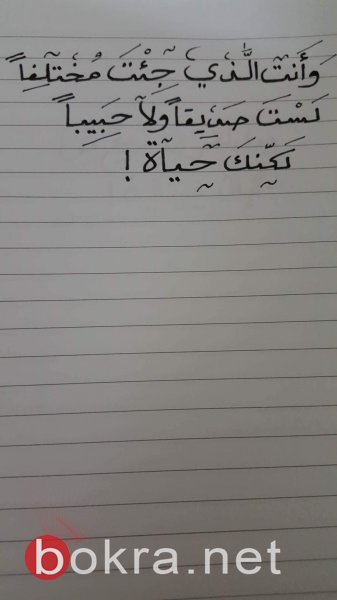 وَأَنتَ الَّذي جِئْتَ مُخْتَلِفاً
لَسْتَ صَدِيقاً وَلاَ حَبِيباً
لَكِنَّكَ حَيَاة !
bokra.net